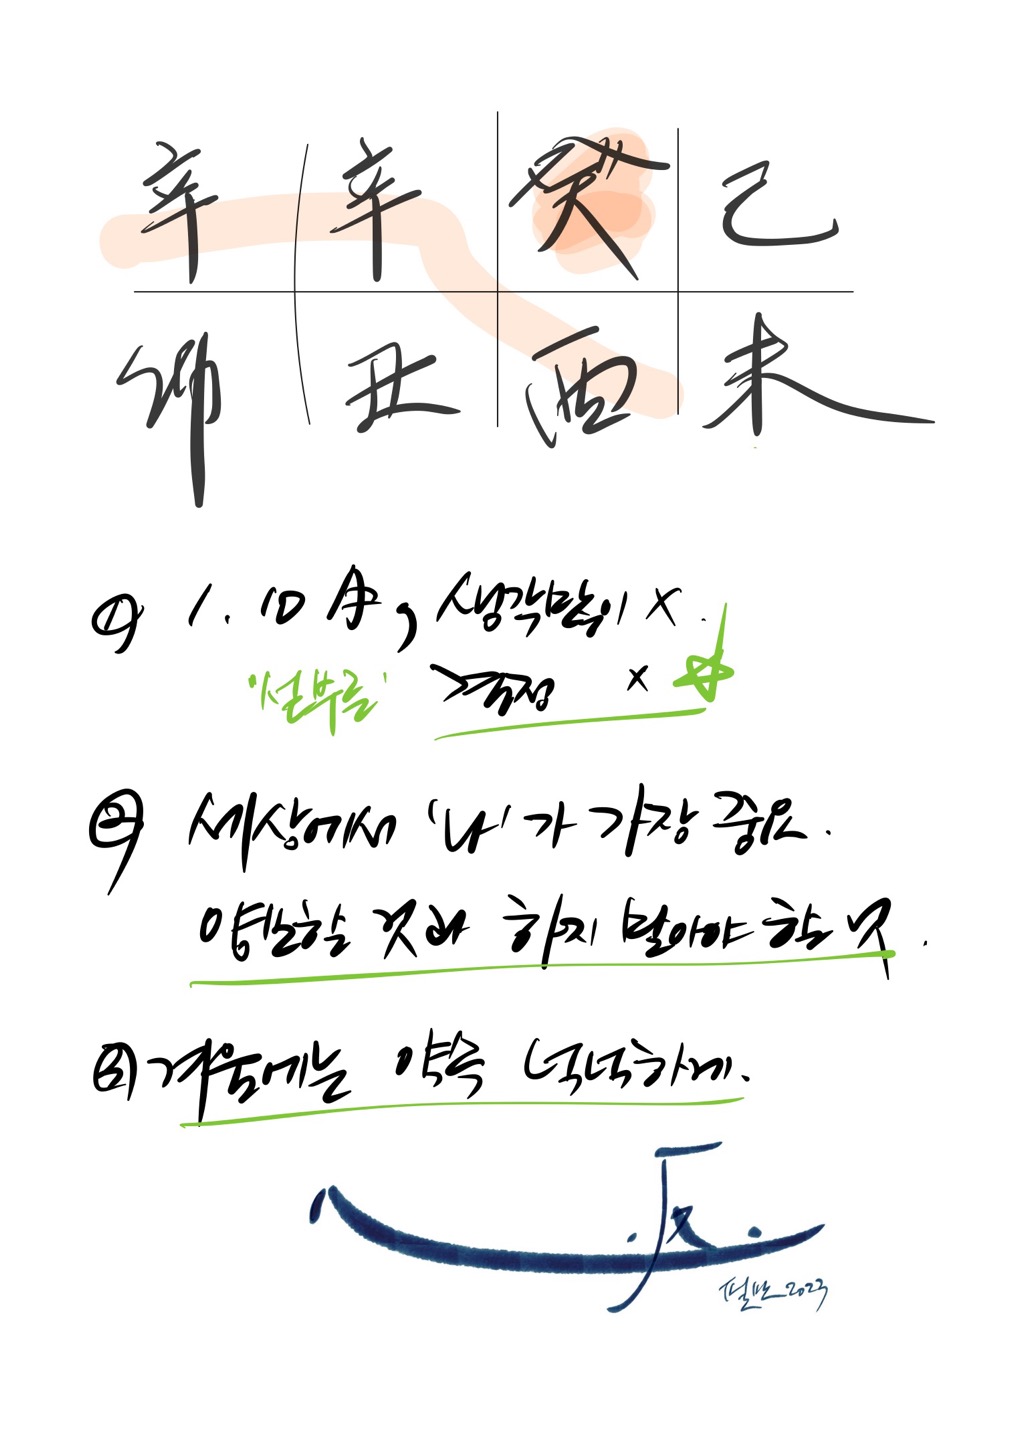 辛 辛 癸 己
卯 丑 酉 未
① 1. 10 金, 생각많이 X.
'섣부른' 걱정 X
② 세상에서 '나'가 가장 중요.
양보할 것과 하지 말아야 할 것.
③ 겨울에는 약속 넉넉하게.
2023